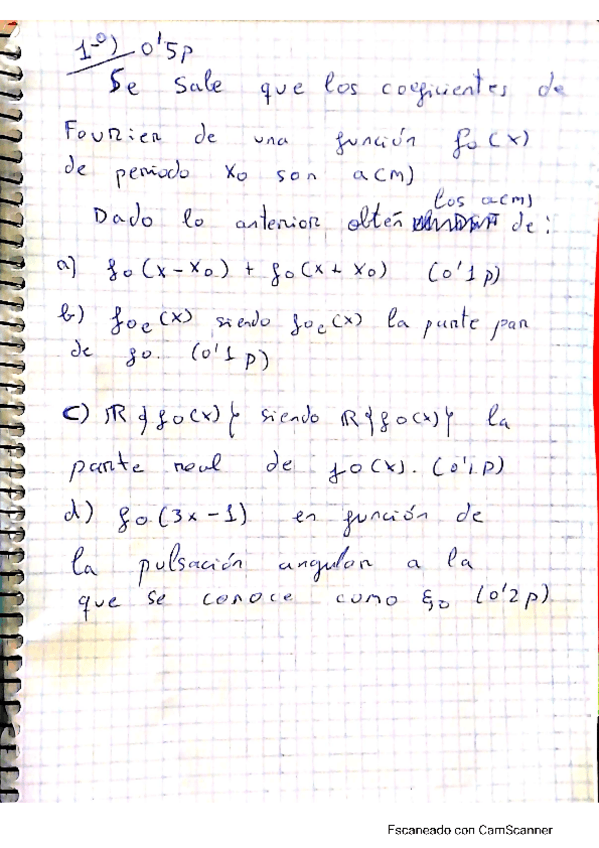 1º) 0'5p
Se sabe que los coeficientes de
Fourier de una función f₀(x)
de periodo x₀ son a(m)
los a(m)
Dado lo anterior, obten de:
a) f₀(x-x₀) + f₀(x+x₀) (0'1p)
b) f₀e(x) siendo f₀e(x) la parte par
de f₀. (0'1p)
c) ℝ{f₀(x)} siendo ℝ{f₀(x)} la
parte real de f₀(x). (0'1p)
d) f₀(3x-1) en función de
la pulsación angular a la
que se conoce como ξ₀ (0'2p)
Escaneado con CamScanner